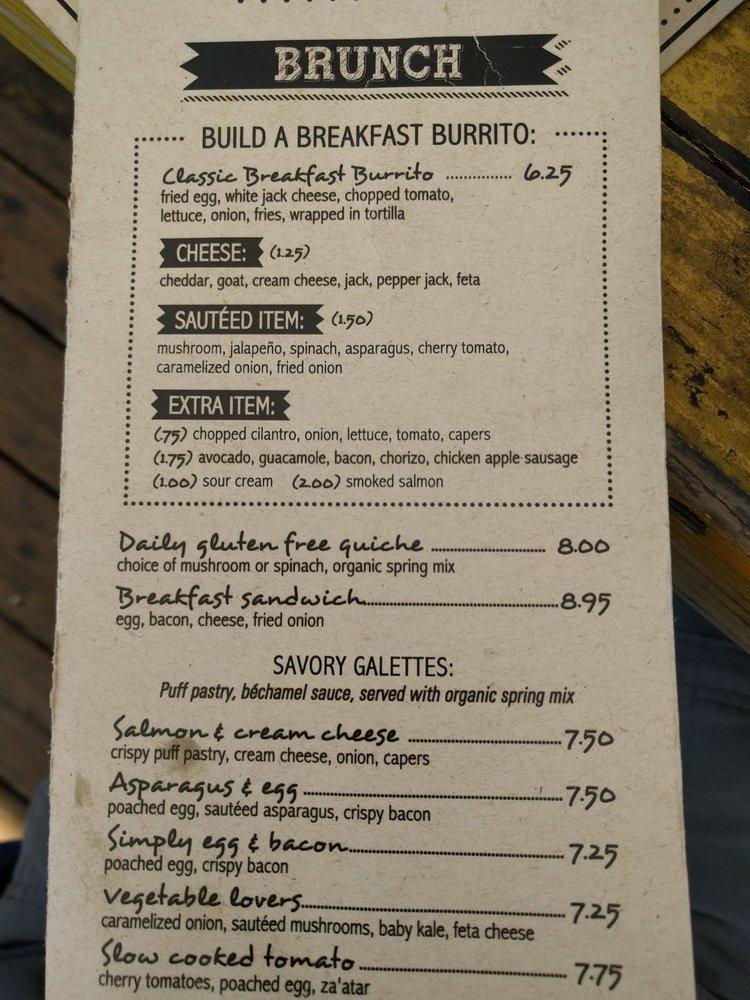 BRUNCH
BUILD A BREAKFAST BURRITO:
Classic Breakfast Burrito ............... 6.25
fried egg, white jack cheese, chopped tomato,
lettuce, onion, fries, wrapped in tortilla
CHEESE: (1.25)
cheddar, goat, cream cheese, jack, pepper jack, feta
SAUTÉED ITEM: (1.50)
mushroom, jalapeño, spinach, asparagus, cherry tomato,
caramelized onion, fried onion
EXTRA ITEM:
(.75) chopped cilantro, onion, lettuce, tomato, capers
(1.75) avocado, guacamole, bacon, chorizo, chicken apple sausage
(1.00) sour cream (2.00) smoked salmon
Daily gluten free quiche ............... 8.00
choice of mushroom or spinach, organic spring mix
Breakfast sandwich ............... 8.95
egg, bacon, cheese, fried onion
SAVORY GALETTES:
Puff pastry, béchamel sauce, served with organic spring mix
Salmon & cream cheese ............... 7.50
crispy puff pastry, cream cheese, onion, capers
Asparagus & egg ............... 7.50
poached egg, sautéed asparagus, crispy bacon
Simply egg & bacon ............... 7.25
poached egg, crispy bacon
Vegetable lovers ............... 7.25
caramelized onion, sautéed mushrooms, baby kale, feta cheese
Slow cooked tomato ............... 7.75
cherry tomatoes, poached egg, za'atar